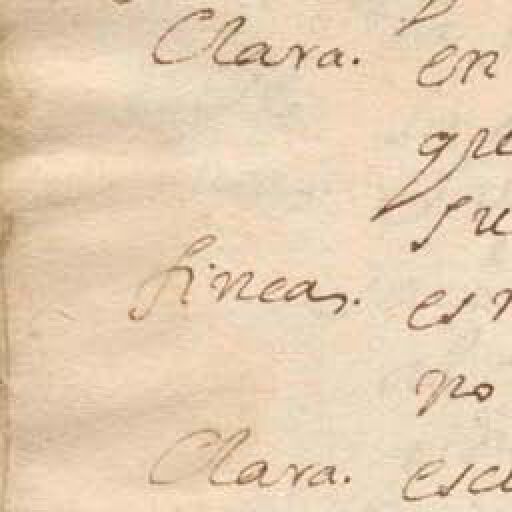 Clara. en
gre
su
fineas. es
no
Clara. escu